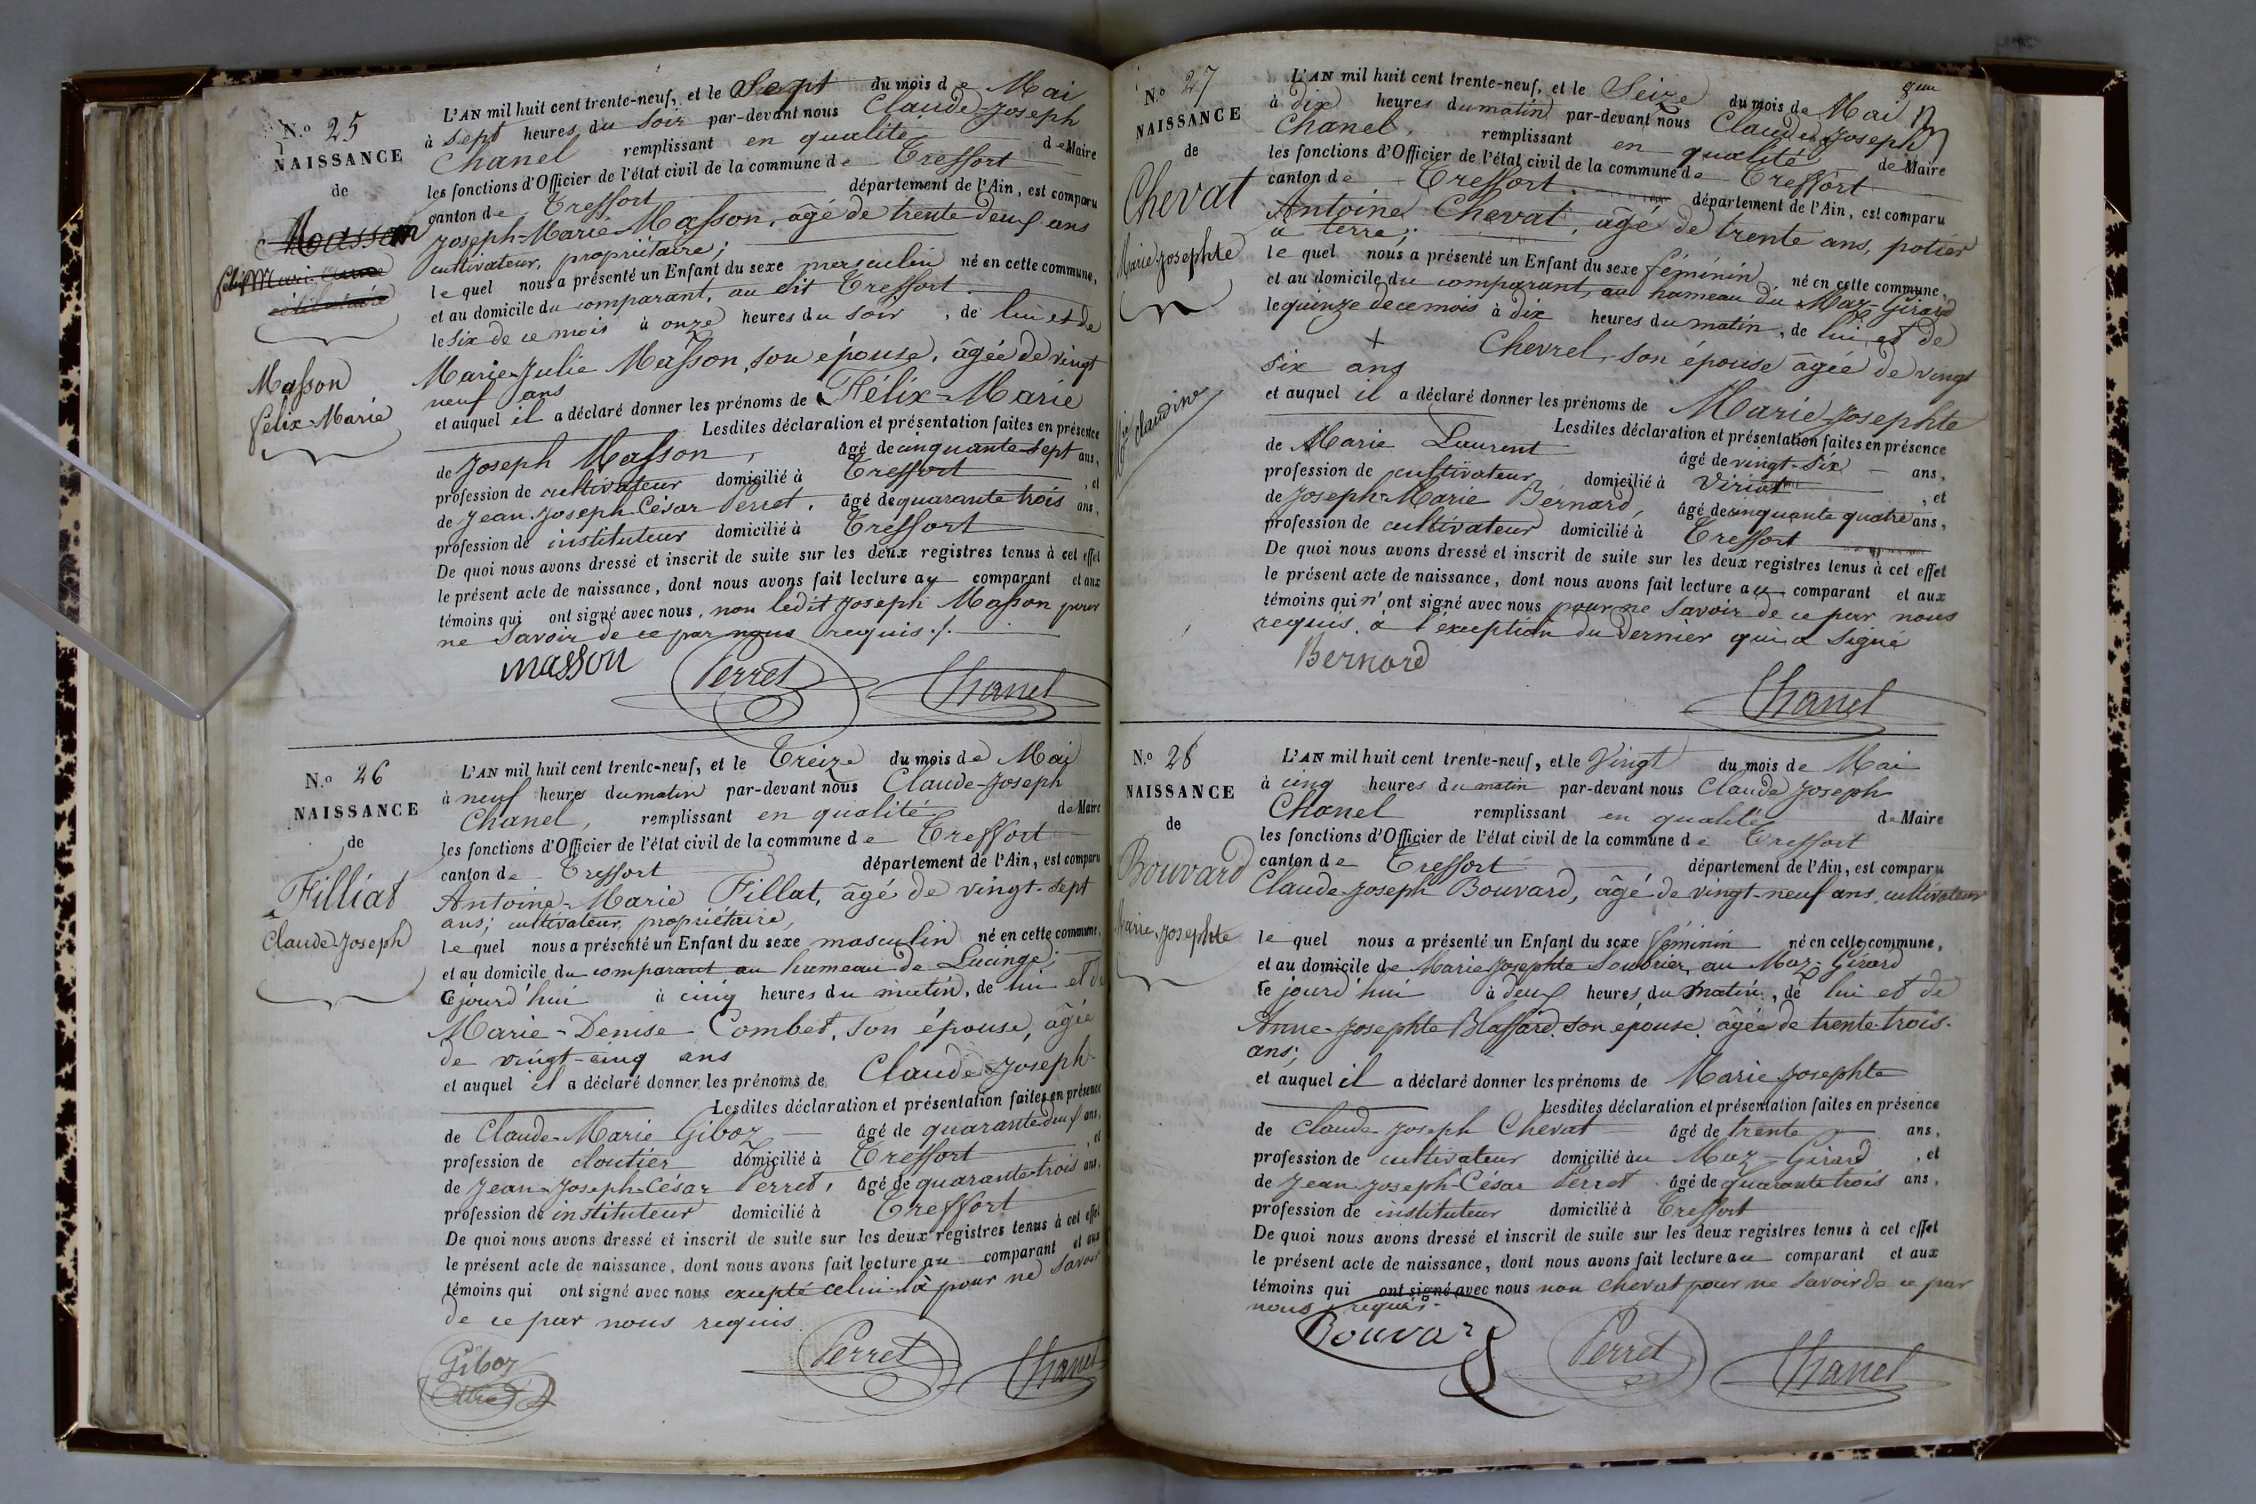 N.o 25
NAISSANCE
de
Masson
Félix Marie
Masson
félix-Marie
L'AN mil huit cent trente-neuf, et le Sept du mois de Mai
à sept heures du soir par-devant nous Claude-Joseph
Chanel remplissant en qualité de Maire
les fonctions d'Officier de l'état civil de la commune de Treffort
canton de Treffort département de l'Ain, est comparu
Joseph-Marie Masson, âgé de trente deux ans
cultivateur, propriétaire;
lequel nous a présenté un Enfant du sexe masculin né en cette commune,
et au domicile du comparant, au dit Treffort.
le six de ce mois à onze heures du soir, de lui et de
Marie-Julie Masson, son épouse, âgée de vingt
neuf ans
et auquel il a déclaré donner les prénoms de Félix-Marie
Lesdites déclaration et présentation faites en présence
de Joseph Masson, âgé de cinquante-sept ans,
profession de cultivateur domicilié à Treffort, et
de Jean-Joseph-César Perret, âgé de quarante trois ans,
profession de instituteur domicilié à Treffort
De quoi nous avons dressé et inscrit de suite sur les deux registres tenus à cet effet
le présent acte de naissance, dont nous avons fait lecture au comparant et aux
témoins qui ont signé avec nous, non ledit Joseph Masson pour
ne savoir de ce par nous requis./.
masson Perret Chanel
N.o 26
NAISSANCE
de
Filliat
Claude-Joseph
L'AN mil huit cent trente-neuf, et le Treize du mois de Mai
à neuf heures du matin par-devant nous Claude-Joseph
Chanel, remplissant en qualité de Maire
les fonctions d'Officier de l'état civil de la commune de Treffort
canton de Treffort département de l'Ain, est comparu
Antoine-Marie Fillat, âgé de vingt-sept
ans; cultivateur, propriétaire,
lequel nous a présenté un Enfant du sexe masculin né en cette commune,
et au domicile du comparant au hameau de Lucinge;
Cejourd'hui à cinq heures du matin, de lui et de
Marie-Denise Combet, son épouse, âgée
de vingt-cinq ans
et auquel il a déclaré donner les prénoms de Claude-Joseph
Lesdites déclaration et présentation faites en présence
de Claude-Marie Giboz âgé de quarante deux ans,
profession de cloutier domicilié à Treffort, et
de Jean-Joseph-César Perret, âgé de quarante-trois ans,
profession de instituteur domicilié à Treffort
De quoi nous avons dressé et inscrit de suite sur les deux registres tenus à cet effet
le présent acte de naissance, dont nous avons fait lecture au comparant et aux
témoins qui ont signé avec nous excepté celui-là pour ne savoir
de ce par nous requis.
Giboz Perret Chanel
N.o 27
NAISSANCE
de
Chevat
Marie-Josephte
claudine
L'AN mil huit cent trente-neuf, et le Seize du mois de Mai
à dix heures du matin par-devant nous Claude Joseph
Chanel, remplissant en qualité de Maire
les fonctions d'Officier de l'état civil de la commune de Treffort
canton de Treffort. département de l'Ain, est comparu
Antoine Chevat, âgé de trente ans, potier
à terre;
lequel nous a présenté un Enfant du sexe féminin né en cette commune,
et au domicile du comparant, au hameau du Maz-Girard
le quinze de ce mois à dix heures du matin, de lui et de
+ Chevrel, son épouse âgée de vingt
six ans
et auquel il a déclaré donner les prénoms de Marie-Josephte
Lesdites déclaration et présentation faites en présence
de Marie Laurent âgé de vingt-six ans,
profession de cultivateur domicilié à Viriat, et
de Joseph-Marie Bernard, âgé de cinquante quatre ans,
profession de cultivateur domicilié à Treffort
De quoi nous avons dressé et inscrit de suite sur les deux registres tenus à cet effet
le présent acte de naissance, dont nous avons fait lecture au comparant et aux
témoins qui n'ont signé avec nous pour ne savoir de ce par nous
requis, à l'exception du dernier qui a signé
Bernard
Chanel
N.o 28
NAISSANCE
de
Bouvard
Marie, Josephte
L'AN mil huit cent trente-neuf, et le Vingt du mois de Mai
à cinq heures du matin par-devant nous Claude Joseph
Chanel remplissant en qualité de Maire
les fonctions d'Officier de l'état civil de la commune de Treffort
canton de Treffort département de l'Ain, est comparu
Claude-Joseph Bouvard, âgé de vingt-neuf ans, cultivateur
lequel nous a présenté un Enfant du sexe féminin né en cette commune,
et au domicile de Marie Josephte Soubrier, au Maz-Girard
ce jourd'hui à deux heures du matin, de lui et de
Anne-Josephte Blassard son épouse âgée de trente-trois
ans;
et auquel il a déclaré donner les prénoms de Marie Josephte
Lesdites déclaration et présentation faites en présence
de Claude Joseph Chevat âgé de trente ans,
profession de cultivateur domicilié au Maz-Girard, et
de Jean Joseph-César Perret âgé de quarante trois ans,
profession de instituteur domicilié à Treffort
De quoi nous avons dressé et inscrit de suite sur les deux registres tenus à cet effet
le présent acte de naissance, dont nous avons fait lecture au comparant et aux
témoins qui ont signé avec nous non Chevat pour ne savoir de ce par
nous requis.
Bouvard Perret Chanel